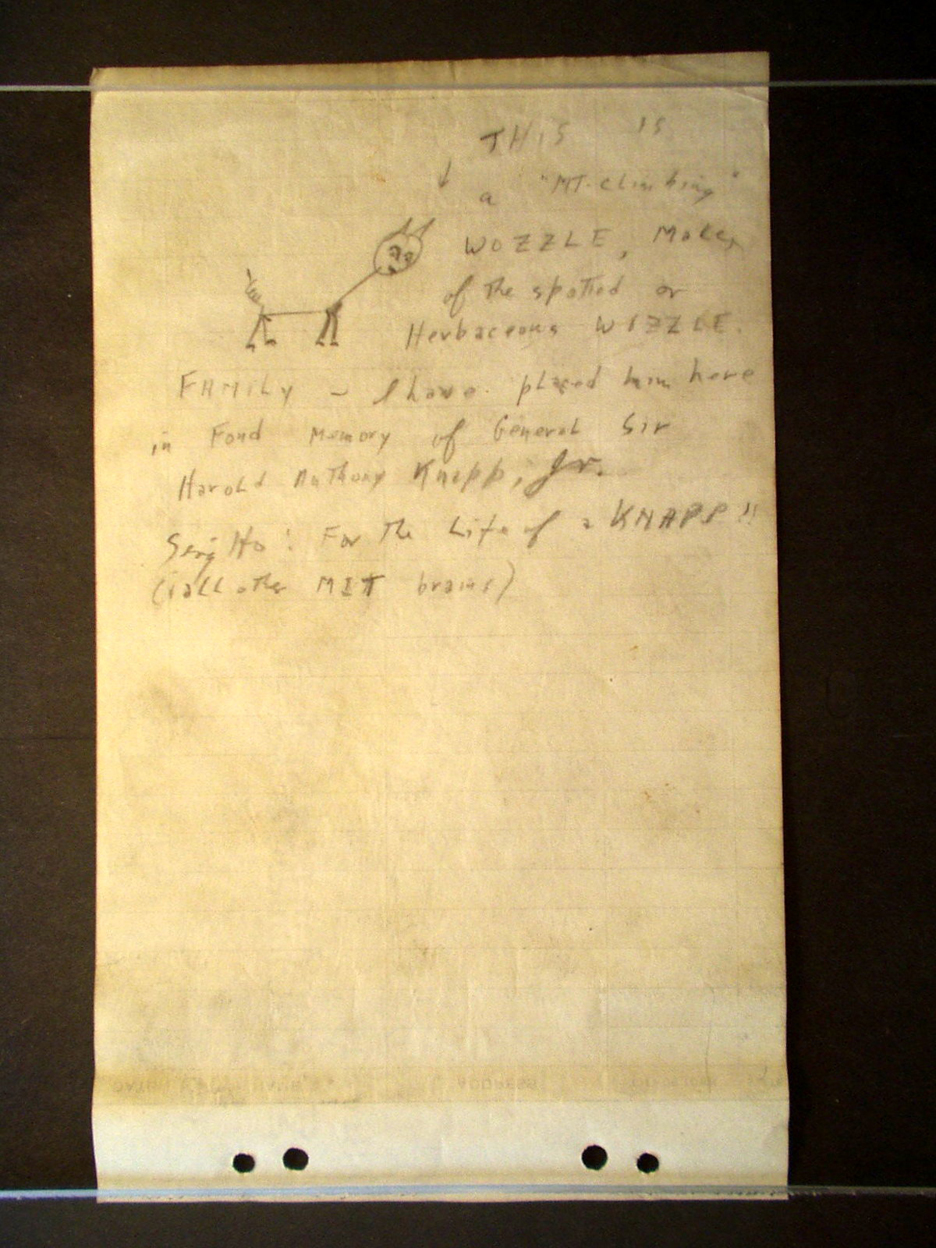 THIS IS
a "MT-climbing"
WOZZLE,
of the spotted or
Herbaceous WIZZLE.
FAMILY – I have placed him here
in Fond Memory of General Sir
Harold Anthony Knapp, Jr.
Sing Ho! For the Life of a KNAPP!!
(& all other MIT brains)